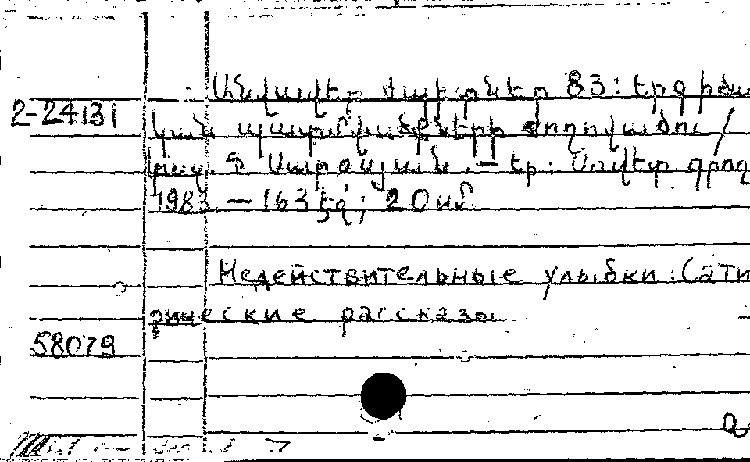 Անվավեր ժպիտներ 83: Երգիծա
2-24131
կան պատմվածքների ժողովածու /
Սարգսյան. — Եր.: Սովետ. գրող
1983 — 163 էջ; 20 սմ
Недействительные улыбки. Сати
рические рассказы
58079